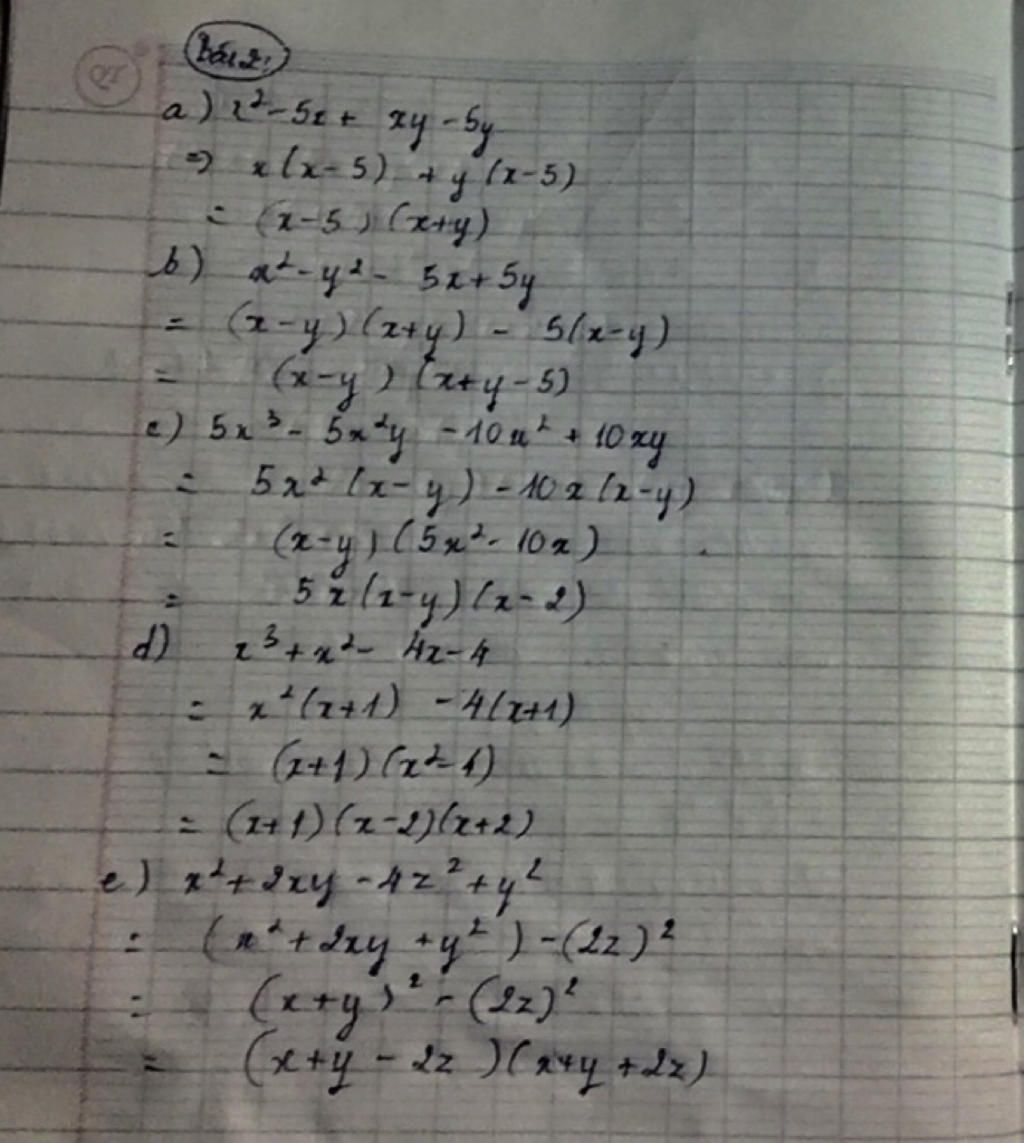 Bài 2:
a) x² - 5x + xy - 5y
=> x(x - 5) + y(x - 5)
= (x - 5)(x + y)
b) x² - y² - 5x + 5y
= (x - y)(x + y) - 5(x - y)
= (x - y)(x + y - 5)
c) 5x³ - 5x²y - 10x² + 10xy
= 5x²(x - y) - 10x(x - y)
= (x - y)(5x² - 10x)
= 5x(x - y)(x - 2)
d) x³ + x² - 4x - 4
= x²(x + 1) - 4(x + 1)
= (x + 1)(x² - 1)
= (x + 1)(x - 2)(x + 2)
e) x² + 2xy - 4z² + y²
= (x² + 2xy + y²) - (2z)²
= (x + y)² - (2z)²
= (x + y - 2z)(x + y + 2z)